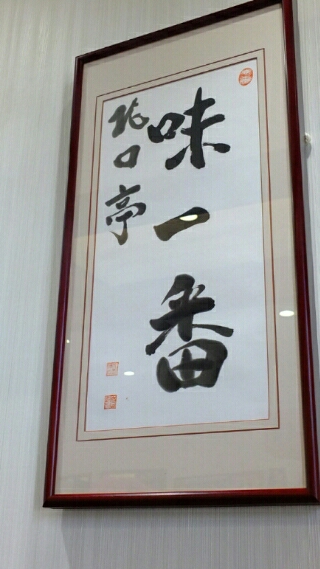 味一番
口亭